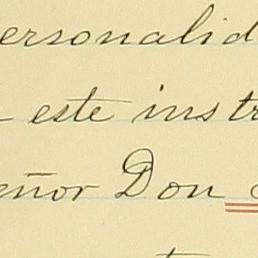 ersonalid
este instr
eñor Don